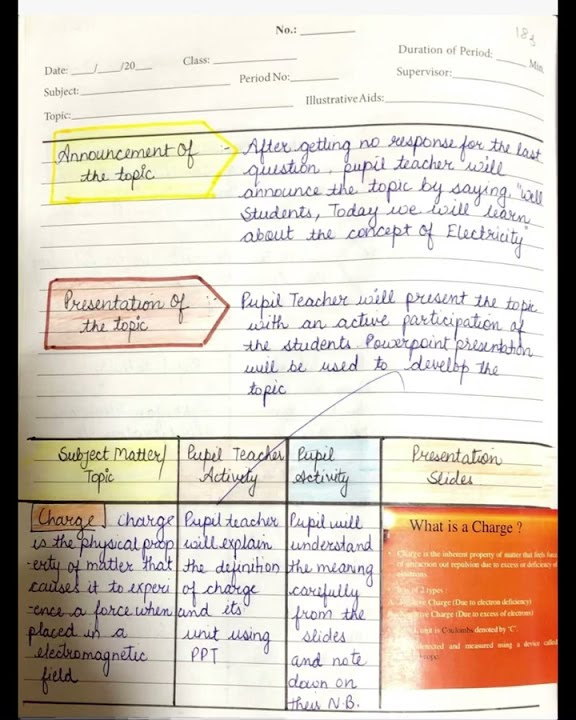 No.:
183
Date: / /20
Class:
Duration of Period: Min
Subject:
Period No:
Supervisor:
Topic:
Illustrative Aids:
Announcement of
the topic
:- After getting no response for the last
question, pupil teacher will
announce the topic by saying, "Well
Students, Today we will learn
about the concept of Electricity"
Presentation of
the topic
:- Pupil Teacher will present the topic
with an active participation of
the students. Powerpoint presentation
will be used to develop the
topic
Subject Matter/
Topic
Pupil Teacher
Activity
Pupil
Activity
Presentation
Slides
Charge, charge
is the physical prop
-erty of matter that
causes it to experi
-ence a force when
placed in a
electromagnetic
field
Pupil teacher
will explain
the definition
of charge
and its
unit using
PPT
Pupil will
understand
the meaning
carefully
from the
slides
and note
down on
their N.B.
What is a Charge ?
Charge is the inherent property of matter that feels
of attraction out repulsion due to excess or deficiency of
electrons
of 2 types :
Charge (Due to electron deficiency)
Charge (Due to excess of electrons)
unit is Coulombs denoted by 'C'.
detected and measured using a device called